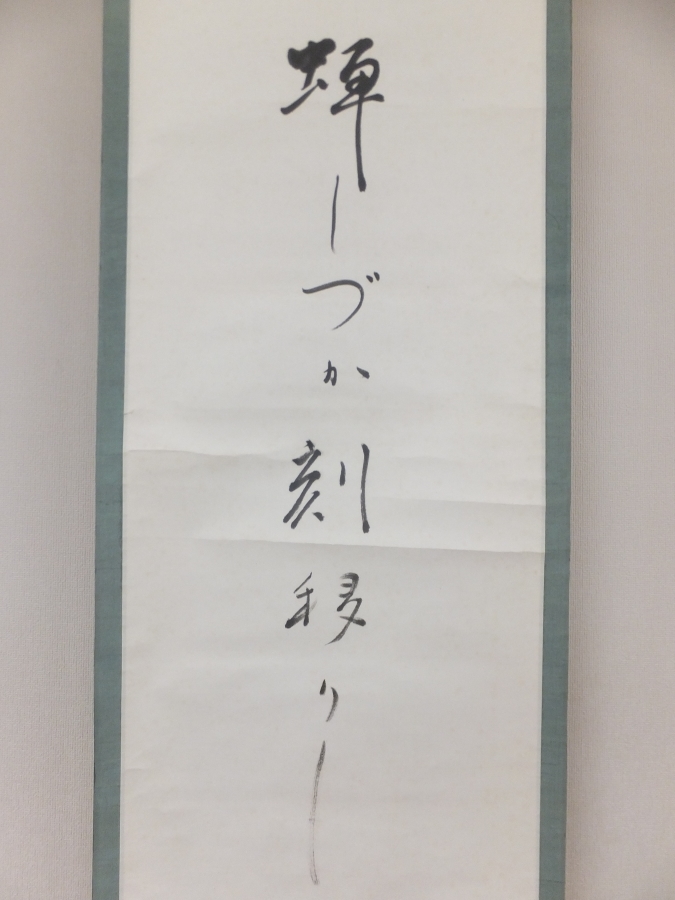 蝉しづか刻移りし